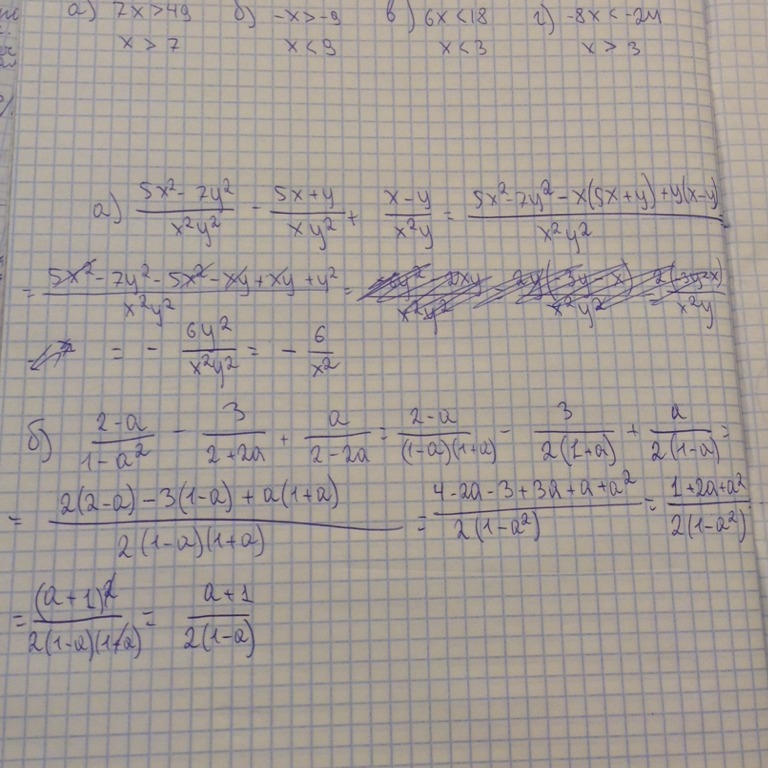 а) 7x>49 б) -x>-9 в) 6x<18 г) -8x<-24
x > 7 x<9 x<3 x > 3
а) (5x²-7y²)/(x²y²) - (5x+y)/(xy²) + (x-y)/(x²y) = (5x²-7y²-x(5x+y)+y(x-y))/(x²y²) =
= (5x²-7y²-5x²-xy+xy+y²)/(x²y²) =
= - 6y²/(x²y²) = - 6/x²
б) (2-a)/(1-a²) - 3/(2+2a) + a/(2-2a) = (2-a)/((1-a)(1+a)) - 3/(2(1+a)) + a/(2(1-a)) =
= (2(2-a)-3(1-a)+a(1+a))/(2(1-a)(1+a)) = (4-2a-3+3a+a+a²)/(2(1-a²)) = (1+2a+a²)/(2(1-a²)) =
= (a+1)²/(2(1-a)(1+a)) = (a+1)/(2(1-a))